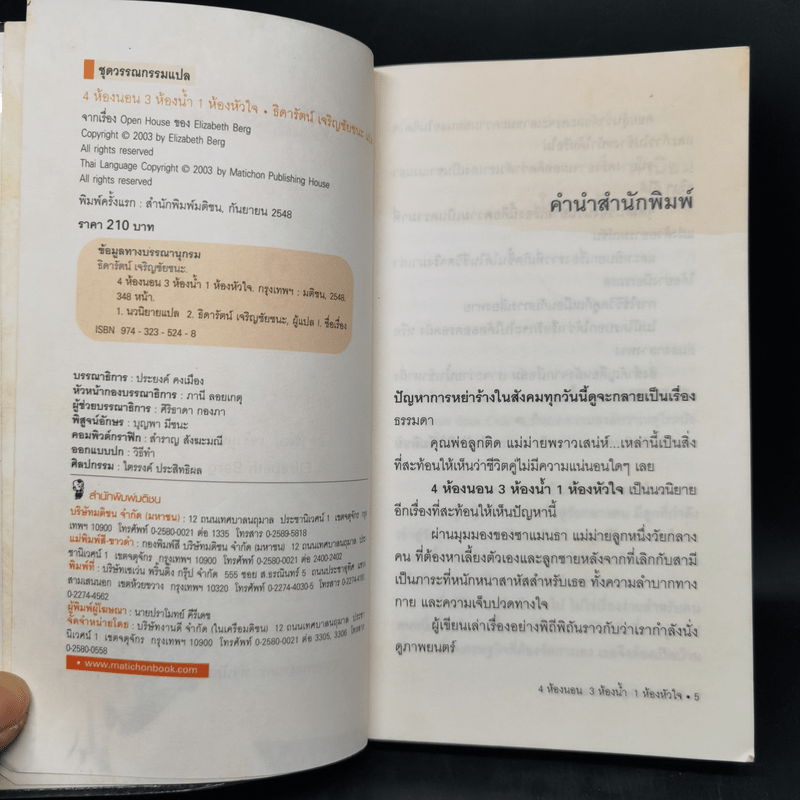 ชุดวรรณกรรมแปล
4 ห้องนอน 3 ห้องน้ำ 1 ห้องหัวใจ • ธิดารัตน์ เจริญชัยชนะ
จากเรื่อง Open House ของ Elizabeth Berg
Copyright © 2003 by Elizabeth Berg
All rights reserved
Thai Language Copyright © 2003 by Matichon Publishing House
All rights reserved
พิมพ์ครั้งแรก : สำนักพิมพ์มติชน, กันยายน 2548
ราคา 210 บาท
ข้อมูลทางบรรณานุกรม
ธิดารัตน์ เจริญชัยชนะ.
4 ห้องนอน 3 ห้องน้ำ 1 ห้องหัวใจ. กรุงเทพฯ : มติชน, 2548.
348 หน้า.
1. นวนิยายแปล 2. ธิดารัตน์ เจริญชัยชนะ, ผู้แปล I. ชื่อเรื่อง
ISBN 974 - 323 - 524 - 8
บรรณาธิการ : ประยงค์ คงเมือง
หัวหน้ากองบรรณาธิการ : ภานี ลอยเกตุ
ผู้ช่วยบรรณาธิการ : ศิริธาดา กองภา
พิสูจน์อักษร : บุญพา มีชนะ
คอมพิวเตอร์กราฟิก : สำราญ สังฆะมณี
ออกแบบปก : วิธีทำ
ศิลปกรรม : ไตรรงค์ ประสิทธิผล
สำนักพิมพ์มติชน
บริษัทมติชน จำกัด (มหาชน) : 12 ถนนเทศบาลนฤมาล ประชานิเวศน์ 1 เขตจตุจักร
10900 โทรศัพท์ 0-2580-0021 ต่อ 1335 โทรสาร 0-2589-5818
แม่พิมพ์สี-ขาวดำ : กองพิมพ์สี บริษัทมติชน จำกัด (มหาชน) 12 ถนนเทศบาลนฤมาล
ชานิเวศน์ 1 เขตจตุจักร กรุงเทพฯ 10900 โทรศัพท์ 0-2580-0021 ต่อ 2400-2402
พิมพ์ที่ : บริษัทเซเว่น พริ้นติ้ง กรุ๊ป จำกัด 555 ซอย ส.ธรณินทร์ 5 ถนนประชาอุทิศ
สามเสนนอก เขตห้วยขวาง กรุงเทพฯ 10320 โทรศัพท์ 0-2274-4030-5 โทรสาร 0-2274-4195
0-2274-4562
ผู้พิมพ์ผู้โฆษณา : นายปราโมทย์ ศิริเดช
จัดจำหน่ายโดย : บริษัทงานดี จำกัด (ในเครือมติชน) 12 ถนนเทศบาลนฤมาล
นิเวศน์ 1 เขตจตุจักร กรุงเทพฯ 10900 โทรศัพท์ 0-2580-0021 ต่อ 3305, 3306 โทรสาร
0-2580-0558
www.matichonbook.com
คำนำสำนักพิมพ์
ปัญหาการหย่าร้างในสังคมทุกวันนี้ดูจะกลายเป็นเรื่อง
ธรรมดา
คุณพ่อลูกติด แม่ม่ายพราวเสน่ห์...เหล่านี้เป็นสิ่ง
ที่สะท้อนให้เห็นว่าชีวิตคู่ไม่มีความแน่นอนใดๆ เลย
4 ห้องนอน 3 ห้องน้ำ 1 ห้องหัวใจ เป็นนวนิยาย
อีกเรื่องที่สะท้อนให้เห็นปัญหานี้
ผ่านมุมมองของซาแมนธา แม่ม่ายลูกหนึ่งวัยกลาง
คน ที่ต้องหาเลี้ยงตัวเองและลูกชายหลังจากที่เลิกกับสามี
เป็นภาระที่หนักหนาสาหัสสำหรับเธอ ทั้งความลำบากทาง
กาย และความเจ็บปวดทางใจ
ผู้เขียนเล่าเรื่องอย่างพิถีพิถันราวกับว่าเรากำลังนั่ง
ดูภาพยนตร์
4 ห้องนอน 3 ห้องน้ำ 1 ห้องหัวใจ • 5